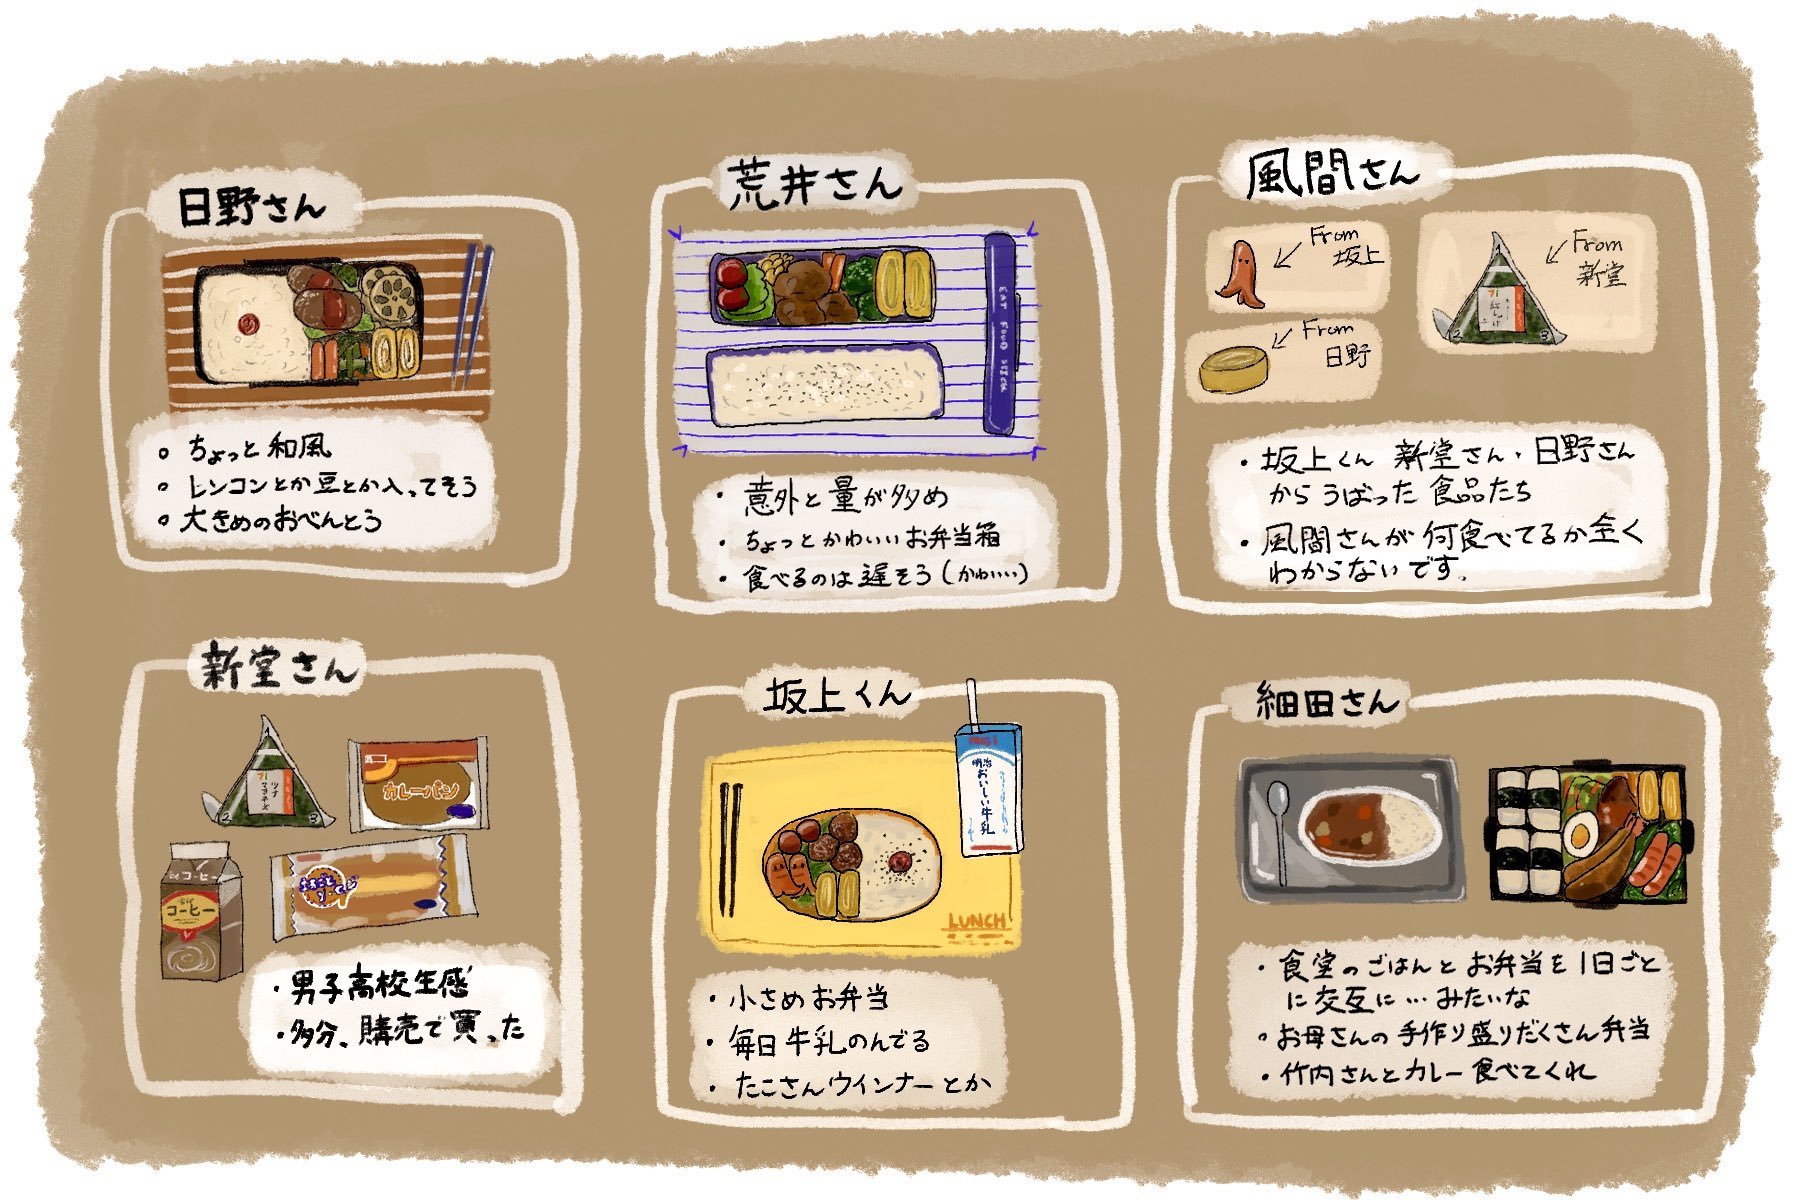 日野さん
○ ちょっと和風
○ レンコンとか豆とか入ってそう
○ 大きめのおべんとう
荒井さん
EAT FOOD
・意外と量が多め
・ちょっとかわいいお弁当箱
・食べるのは遅そう(かわいい)
風間さん
From
坂上
From
新堂
From
日野
・坂上くん 新堂さん・日野さん
からうばった食品たち
・風間さんが何食べてるか全く
わからないです。
新堂さん
ツナ
マヨネーズ
カレーパン
コーヒー
コーヒー
まるごと
ソーセージ
・男子高校生感
・多分、購売で買った
坂上くん
明治
おいしい牛乳
LUNCH
・小さめお弁当
・毎日牛乳のんでる
・たこさんウインナーとか
細田さん
・食堂のごはんとお弁当を1日ごと
に交互に…みたいな
・お母さんの手作り盛りだくさん弁当
・竹内さんとカレー食べてくれ